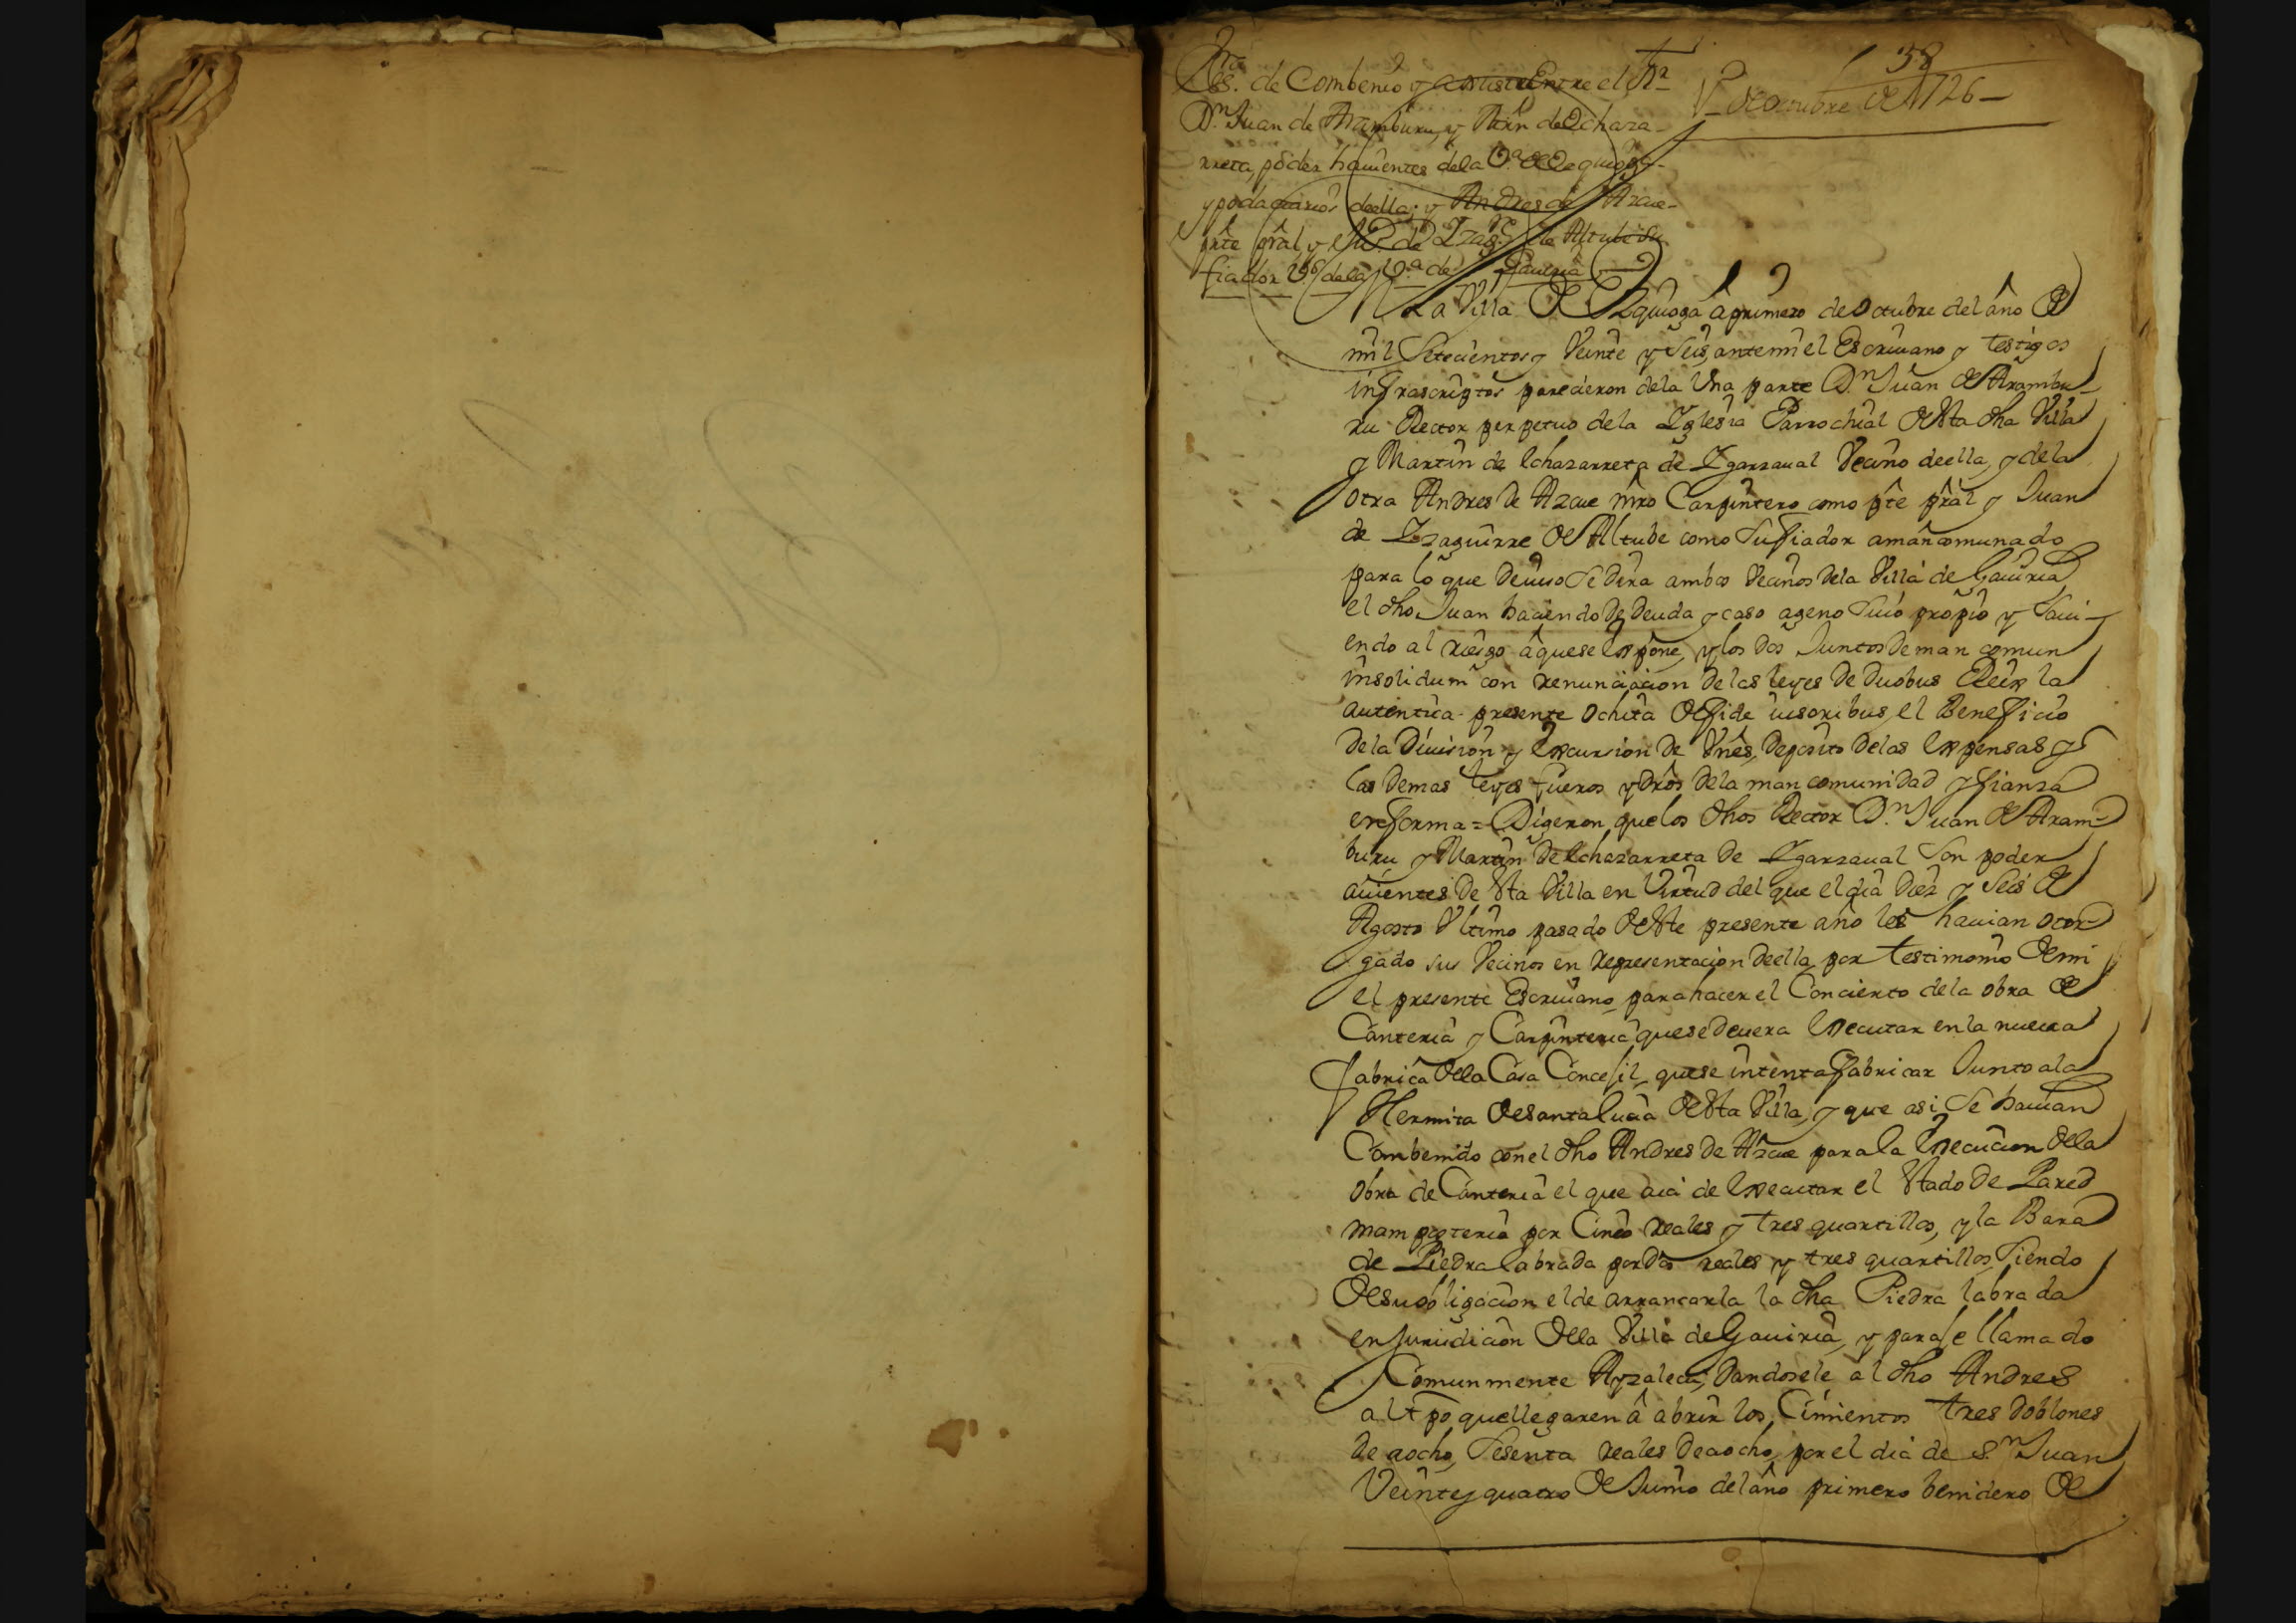 58
Ess.ra de Combenio y ajuste Entre el R.or
1.º de Octubre de 1726
D.n Juan de Aramburu, y Mrn de Echaza-
rreta, poder hauientes dela V.a de Ezquioga
y podatarios de ella; y Andres de Azcue
pte pral y Ju.º de Yzag.e de Altube su
fiador Vs.º dela V.a de Gauiria
En la Villa de Ezquioga a primero de Octubre del año de
mil Setecientos y Veinte y Seis, ante mi el Escriuano y testigos
infrascriptos parecieron dela Vna parte D.n Juan de Arambu-
ru Rector perpetuo dela Yglesia Parrochial de Esta dha Villa
y Martin de Echazarreta de Ygarzaual Vecino de ella, y dela
otra Andres de Azcue mro Carpintero como pte pral y Juan
de Yzaguirre de Altube como Su fiador amancomunado
para lo que deuuso Se dira ambos Vecinos dela Villa de Gauiria
el dho Juan haciendo de deuda y caso ageno Suio propio y Saui-
endo al riesgo a que se Expone, y los dos Juntos de man comun
insolidum con renunciacion de las leyes de duobus Reix la
autentica presente ochita de fide iusoribus, el Beneficio
de la Diuision y Excursion de Vnes, Deposito delas Expensas y
las demas leyes fueros y dros dela mancomunidad y fianza
en forma = Digeron que los dhos Rector D.n Juan de Aram-
buru y Martin de Echazarreta de Ygarzaual Son poder
auientes de Esta Villa en Virtud del que el dia diez y Seis de
Agosto Vltimo pasado de Este presente año les hauian otor
gado sus Vecinos en representacion de ella, por testimonio de mi
el presente Escriuano para hacer el Concierto dela obra de
Canteria y Carpinteria que se deuera Executar en la nueua
fabrica de la Casa Concejil, que se intenta fabricar Junto ala
Hermita de Santa Lucia de Esta Villa, y que asi Se hauian
Combenido con el dho Andres de Azcue para la Execucion de la
obra de Canteria el que aia de Executar el Estado de Pared
mamposteria por Cinco reales y tres quartillos, y la Bara
de Piedra labrada por dos reales y tres quartillos, Siendo
de su obligacion el de arrancarla la dha Piedra labrada
en Jurisdicion de la Villa de Gauiria, y paraje llamado
Comunmente Ayzaleta, dandosele al dho Andres
al tpo que llegaren a abrir los Cimientos tres doblones
de aocho, Sesenta reales de aocho, por el dia de S.n Juan
Veinte y quatro de Junio del año primero benidero de